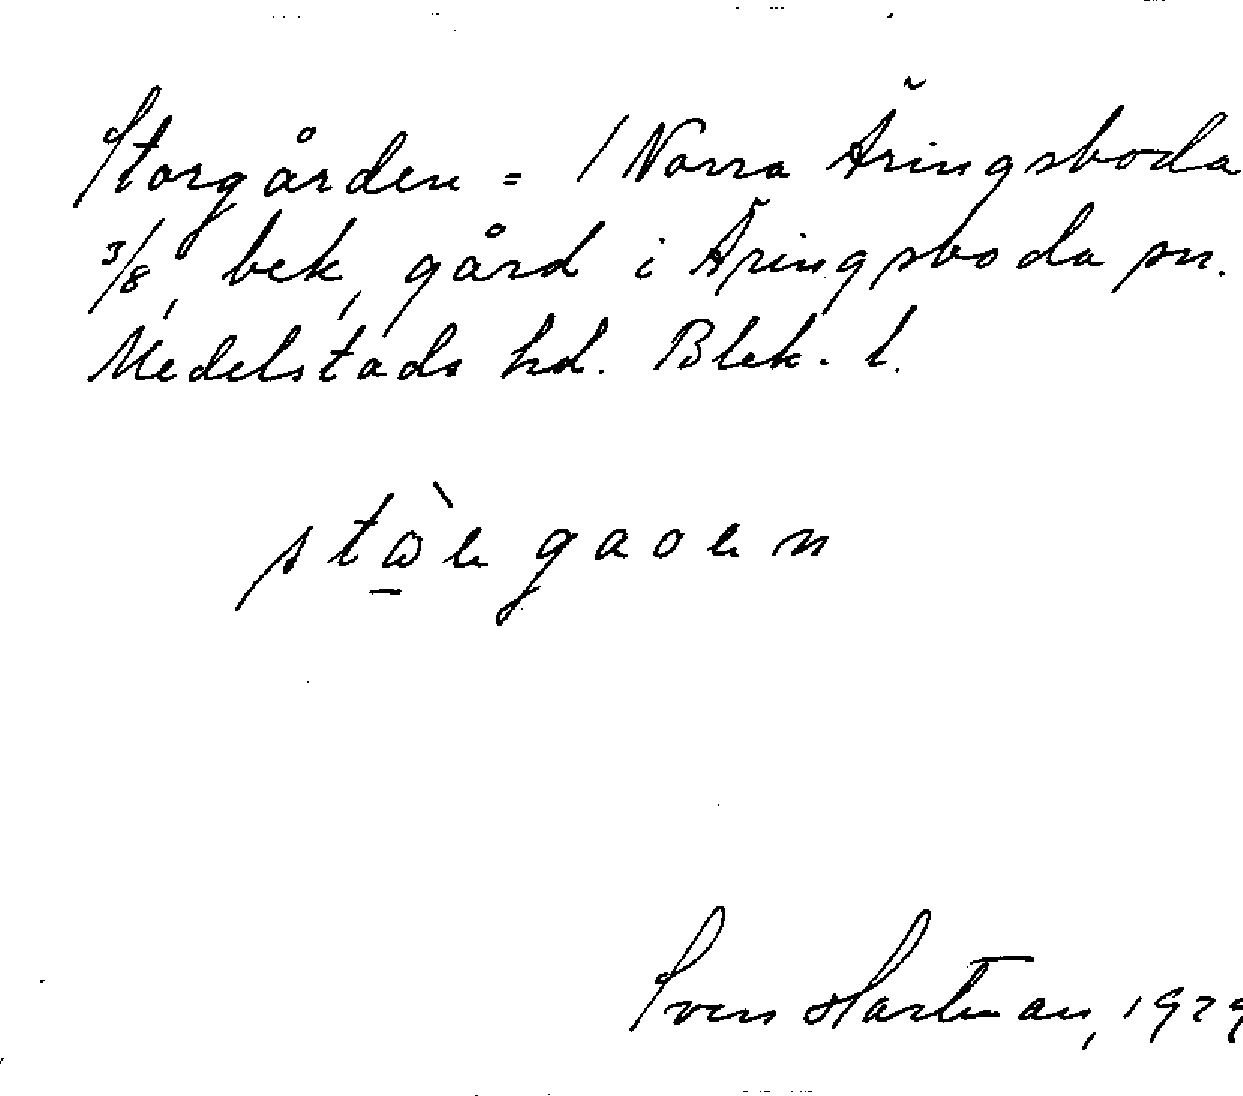 Storgården = / Norra Äringsboda
3/8, bek, gård i Äringsboda sn.
Medelstads hd. Blek. l.
Sven Hartman, 1929